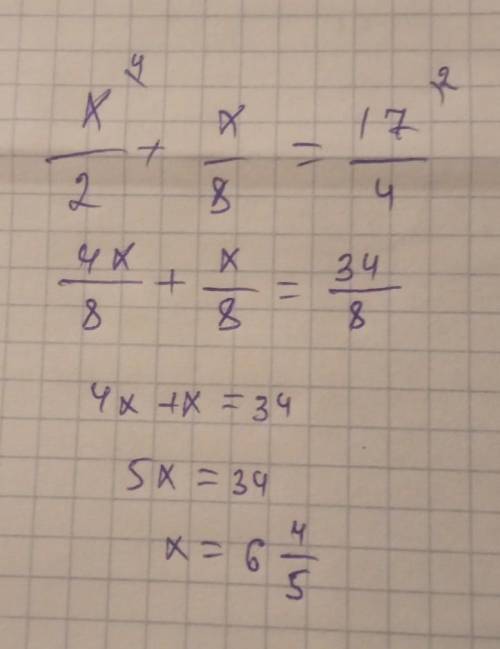 x/2 ⁴ + x/8 = 17/4 ²
4x/8 + x/8 = 34/8
4x + x = 34
5x = 34
x = 6 4/5